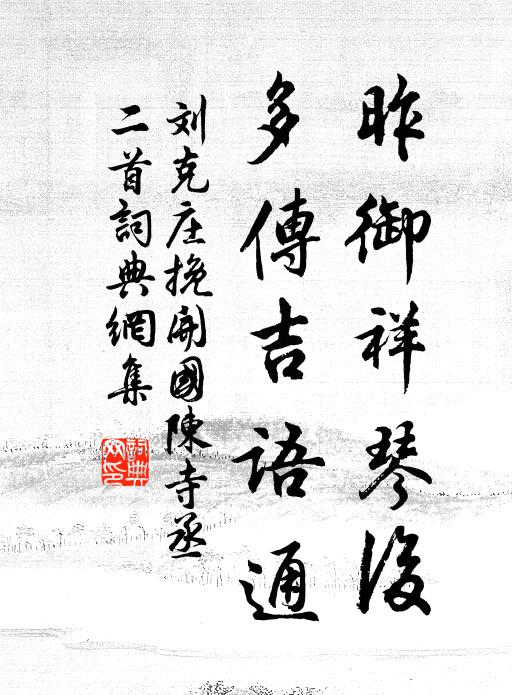 昨御祥琴後
多傳吉語通
刘克庄挽開國陳寺丞
二首詞典網集
詞典
网印